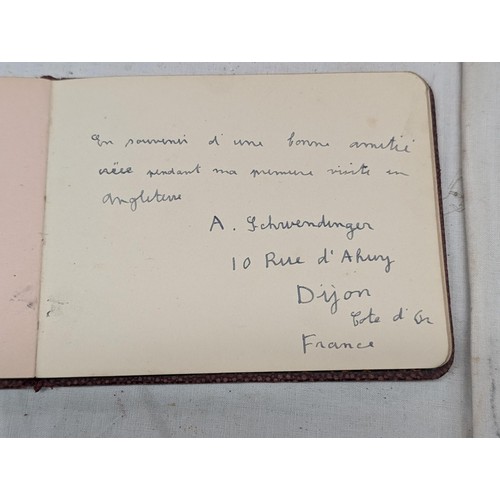 En souvenir d'une bonne amitié
créée pendant ma premiere visite en
Angleterre
A. Schwendinger
10 Rue d'Ahuy
Dijon
Cote d'Or
France